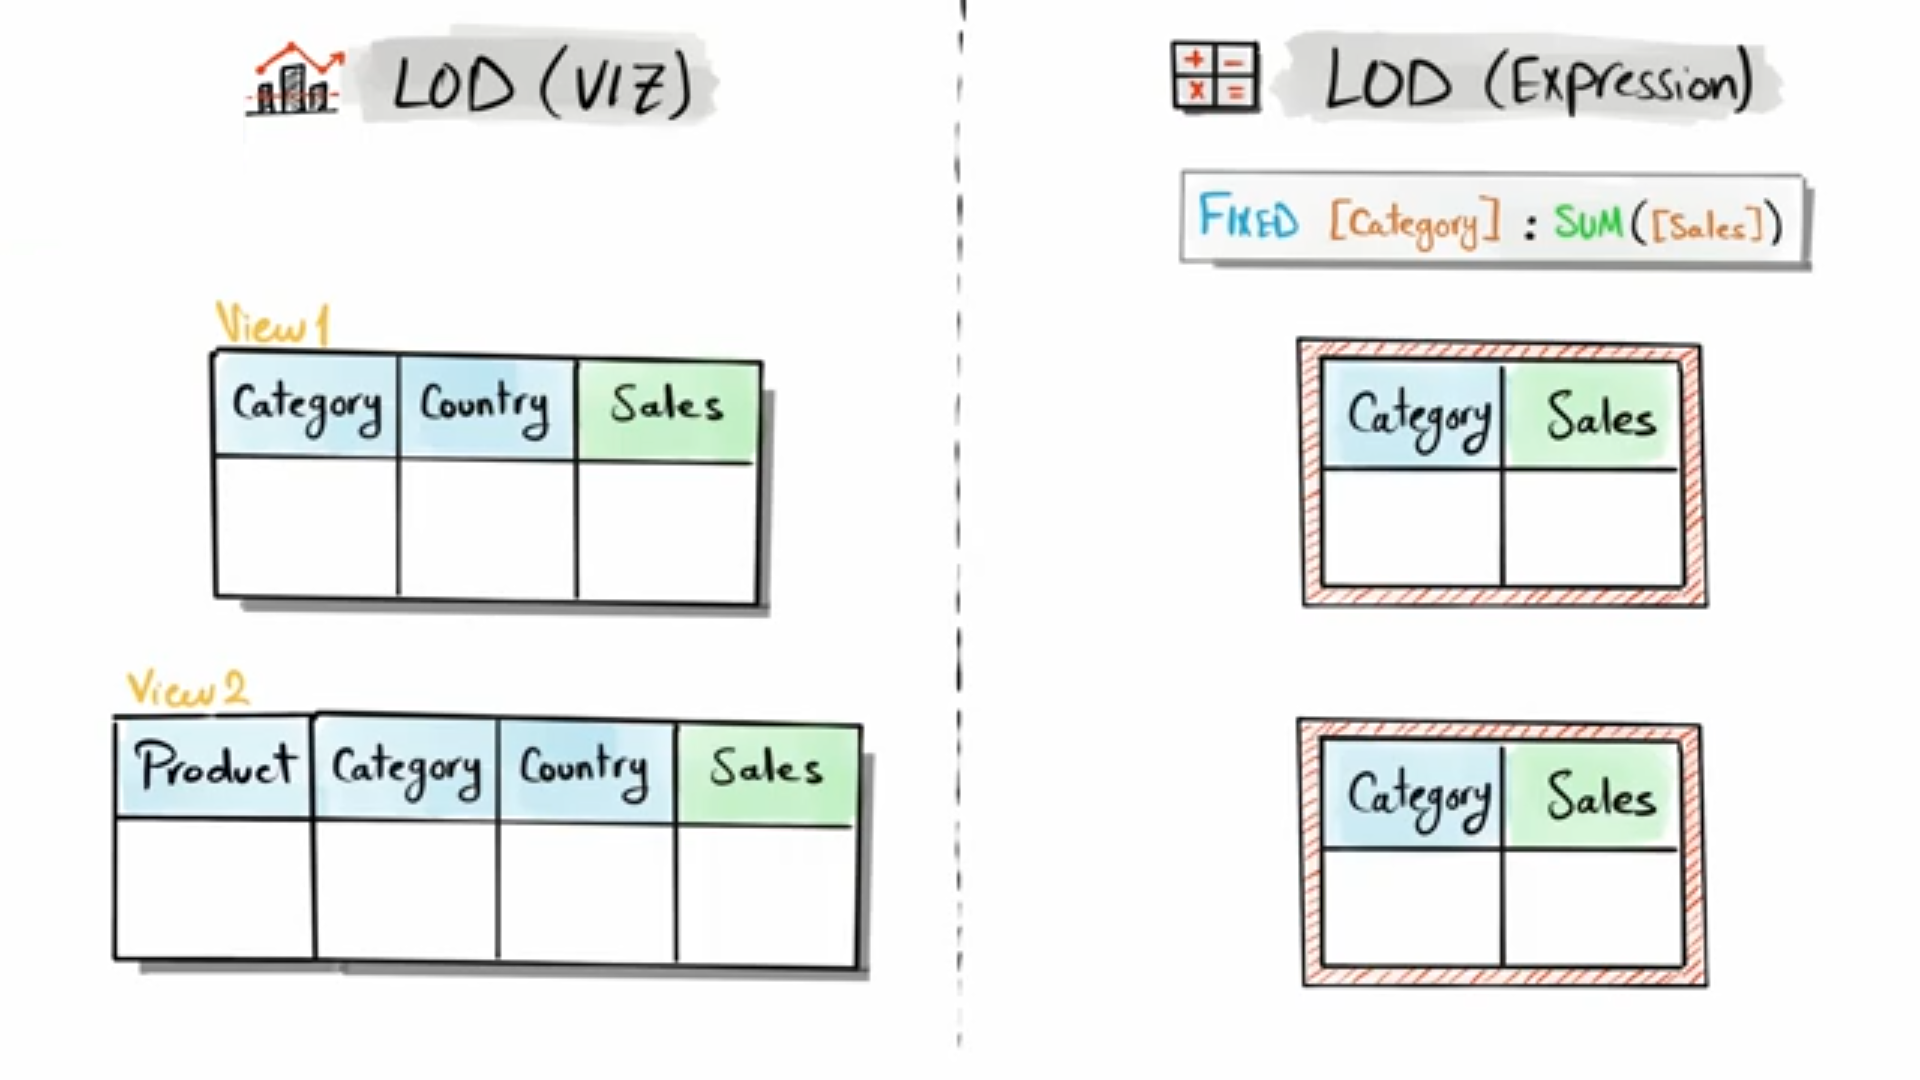 LOD (VIZ)
View 1
Category Country Sales
View 2
Product Category Country Sales
LOD (Expression)
+ -
x =
FIXED [Category] : SUM([Sales])
Category Sales
Category Sales